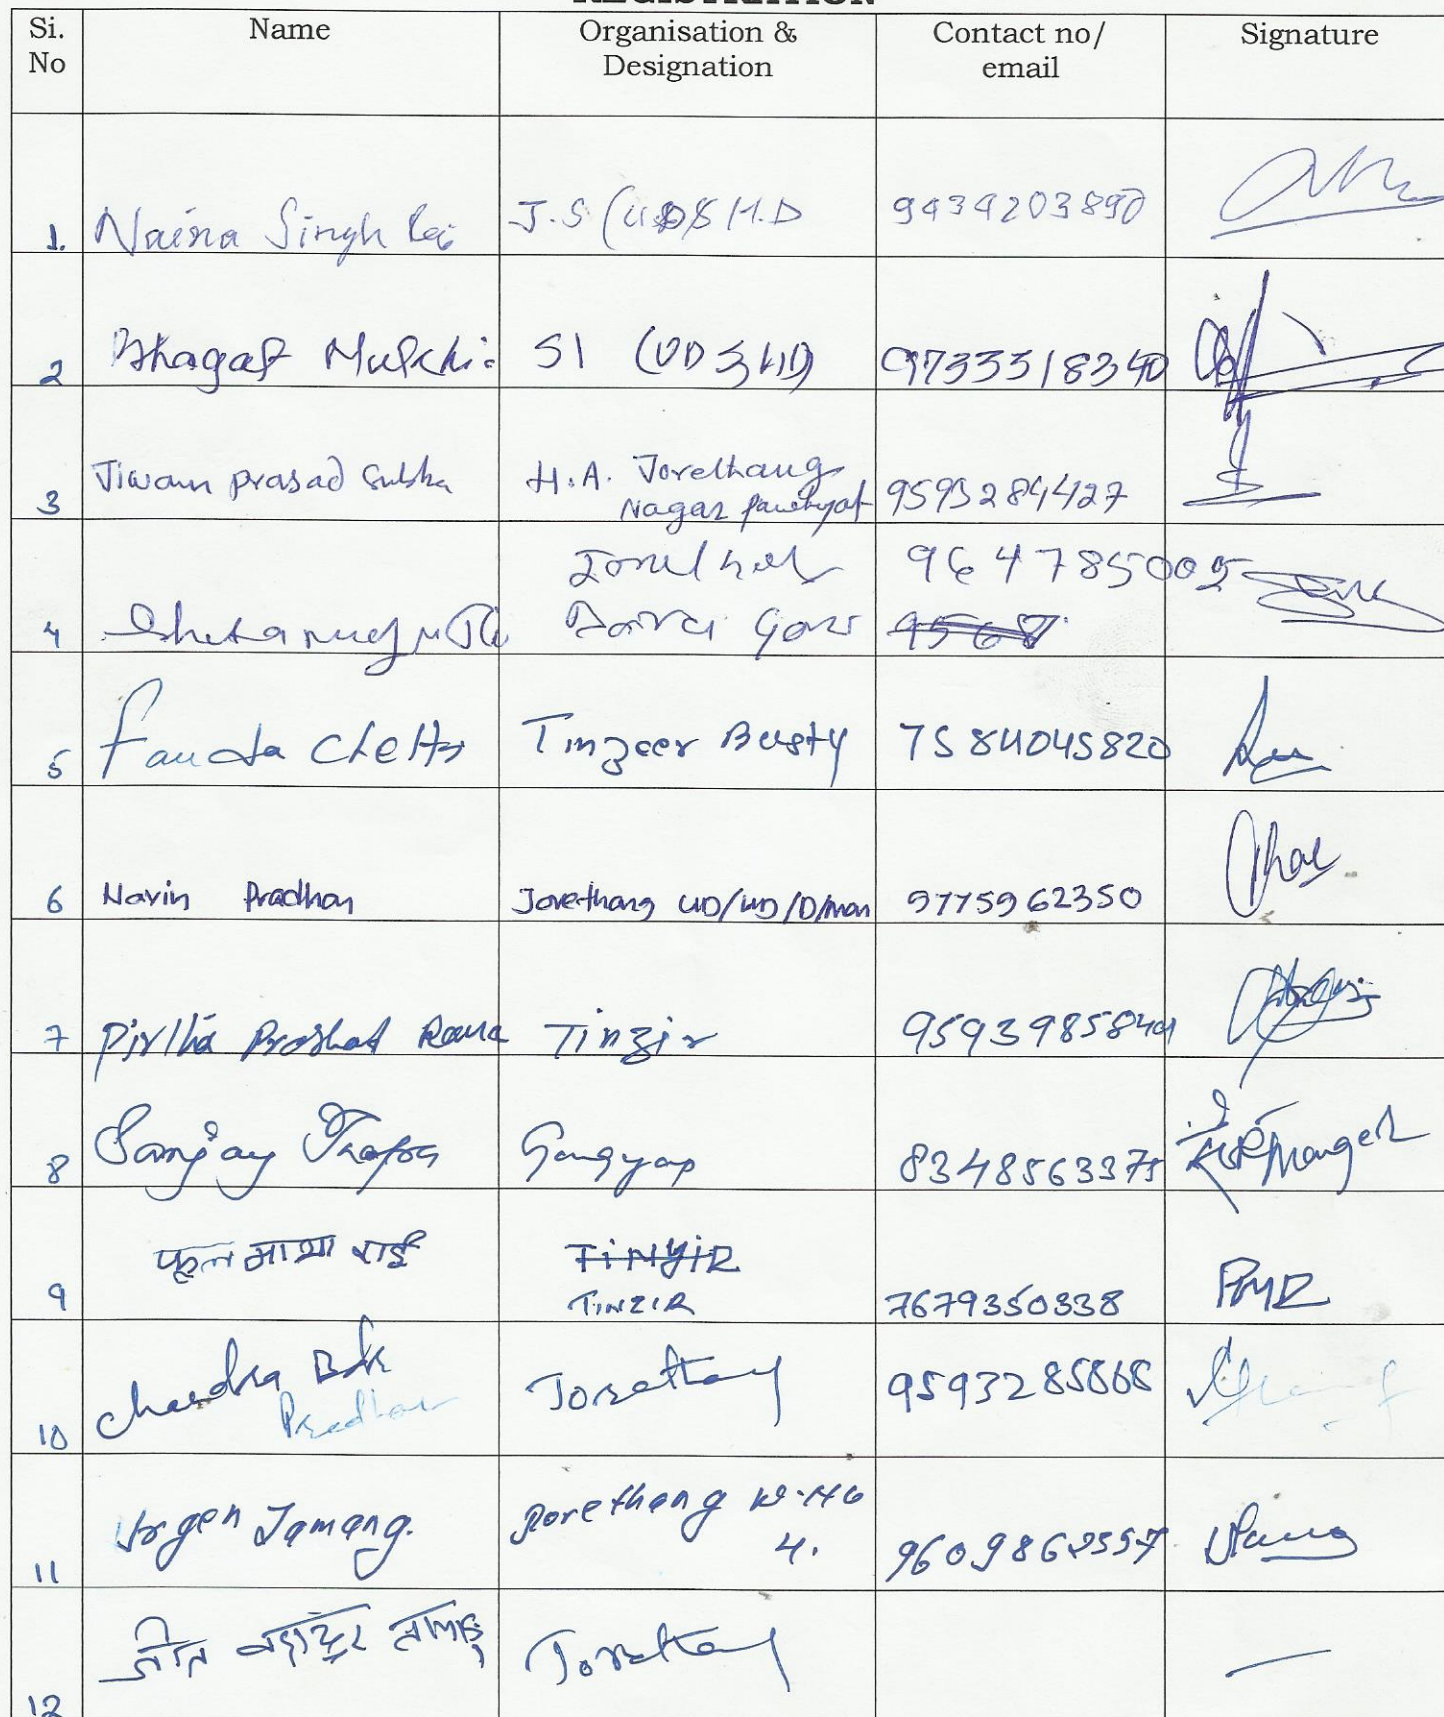 REGISTRATION
Si. No Name Organisation & Designation Contact no/ email Signature
1. Naina Singh Rai J.S (UD&H.D 9434203890
2 Bhagat Mukhia SI (UD&HD) 9733318340
3 Jiwan prasad Subba H.A. Jorethang Nagar Panchyat 9593284427
4 9647785005
5 Chettri Tinzeer Busty 7584045820
6 Navin Pradhan Jorethang UD/HD/D/man 9775962350
7 Pirthá Prashad Tinzir
8 Sanjay Thapa Gangyap 8348563375
9 फूल माया राई TINYIR TINZIR 7679350338 PMR
10 Chandra Bdr Pradhan Jorethang 9593285868
11 Urgen Tamang. Jorethang W-No 4.
12 जीत बहादुर तामाङ् Jorethang